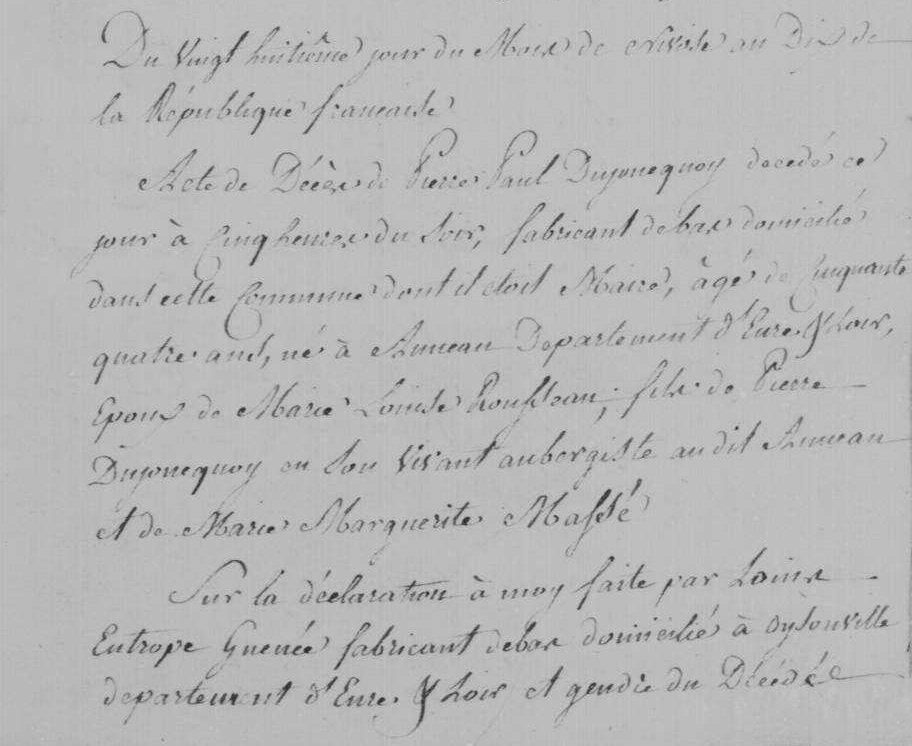 Du Vingt huitième jour du Mois de Nivose an Dix de
la République francaise
Acte de Décès de Pierre Paul Dujoncquoy decedé ce
jour à Cinq heures du Soir, fabricant de bas domicilié
dans cette Commune dont il etoit Maire, âgé de Cinquante
quatre ans, né à Auneau Departement d'Eure & Loir,
Epoux de Marie Louise Rousseau, fils de Pierre
Dujoncquoy en Son Vivant aubergiste audit Auneau
et de Marie Marguerite Massé
Sur la déclaration à moy faite par Louis
Eutrope Guenée fabricant de bas domicilié à Oysonville
departement d'Eure & Loir et gendre du Décédé